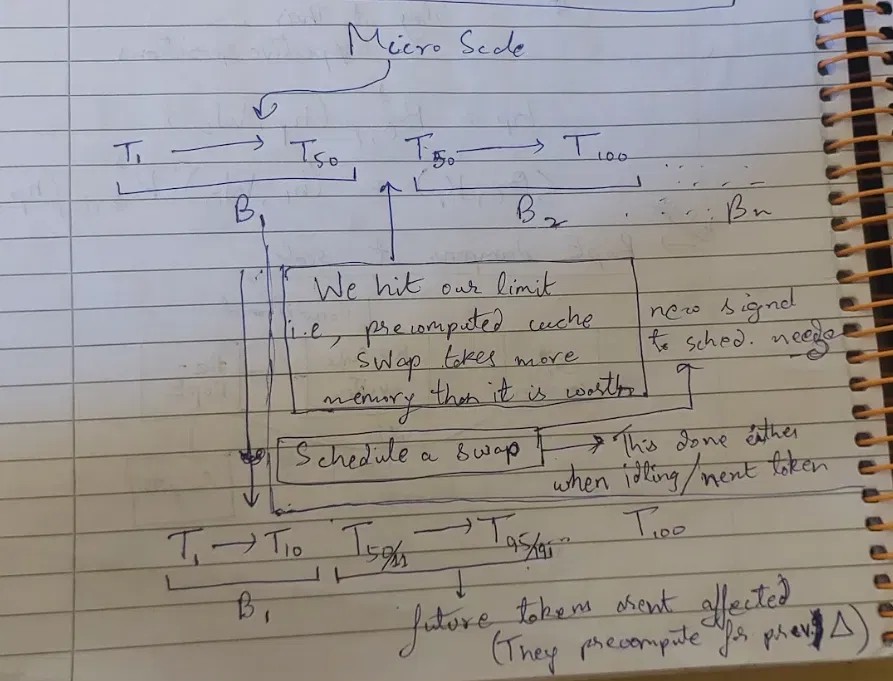 Micro Scale
T₁ → T₅₀ T₅₀ → T₁₀₀
B₁ B₂ Bn
We hit our limit
i.e, precomputed cache
swap takes more
memory than it is worth
new signal
to sched. needed
Schedule a swap → This done either
when idling/next token
T₁ → T₁₀ T₅₀/₁₁ → T₉₅/ T₁₀₀
B₁
future tokens arent affected
(They precompute for prev Δ)